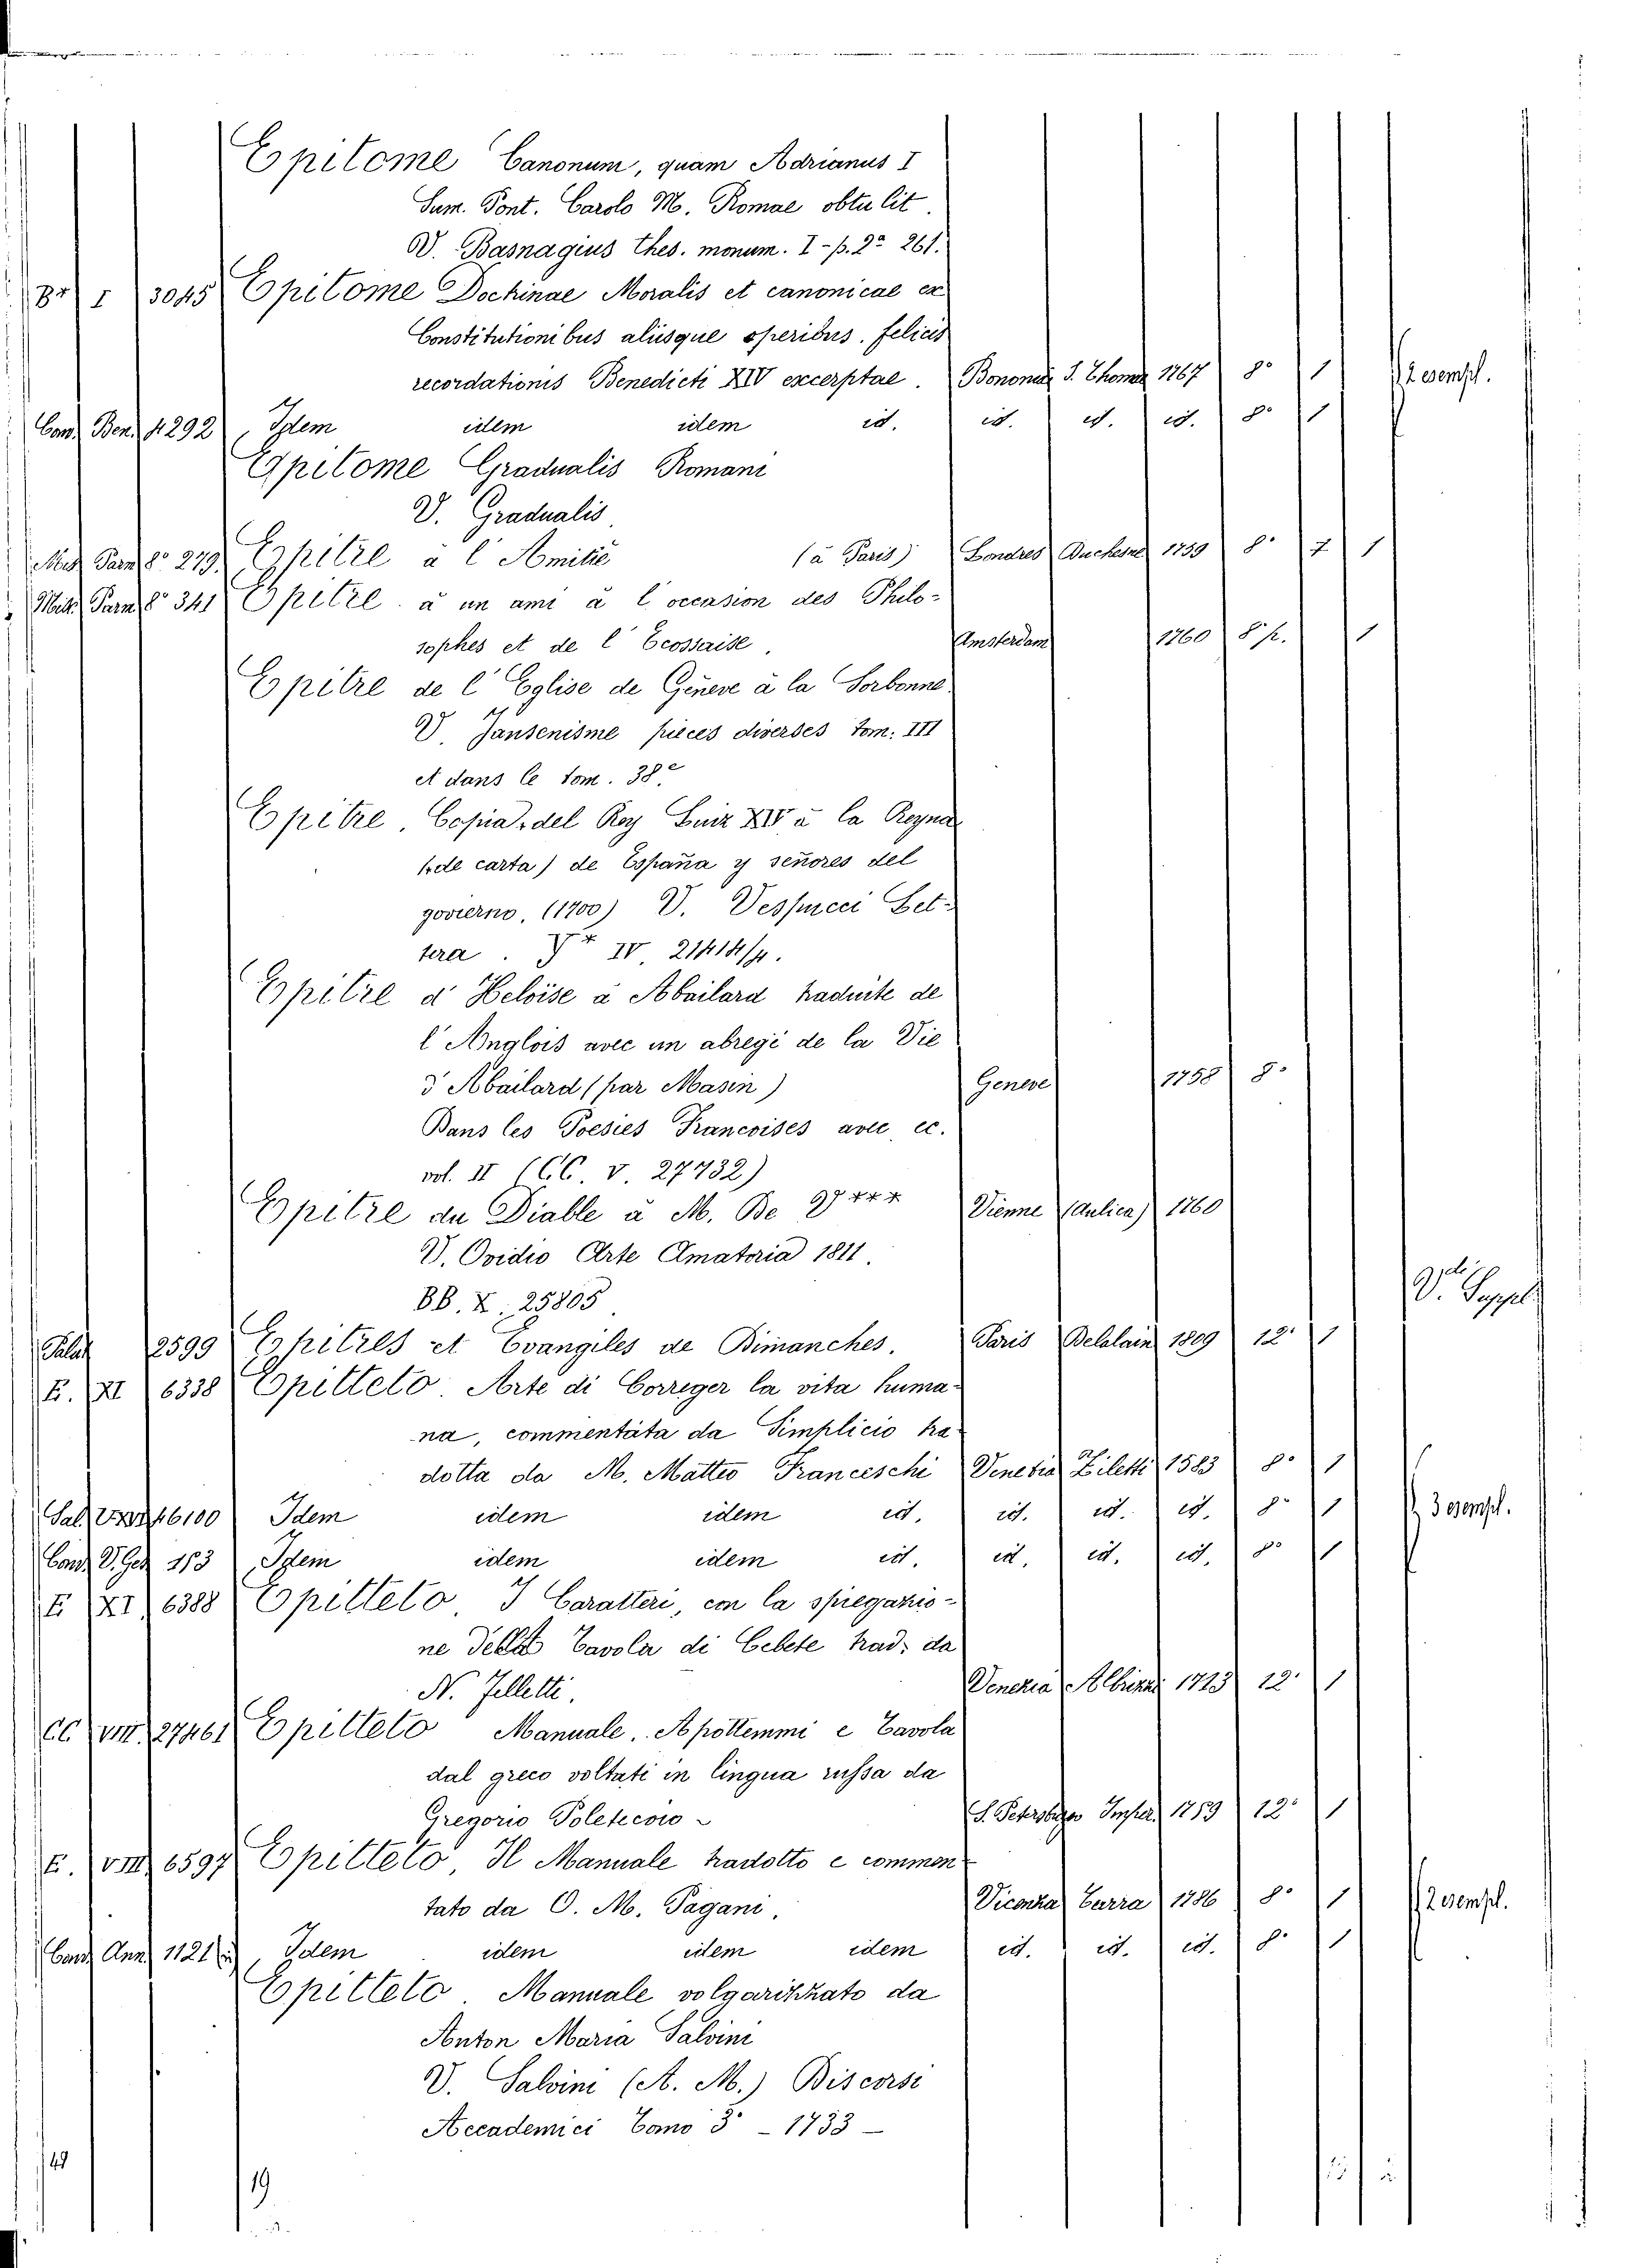 Epitome Canonum, quam Adrianus I
Sum. Pont. Carolo M. Romae obtulit.
V. Basnagius thes. monum. I - p. 2ª 261.
I 3045 Epitome Doctrinae Moralis et canonicae ex
Constitutionibus aliisque operibus. felicis
recordationis Benedicti XIV excerptae. Bononiae S. Thomae 1767 8° 1 2 esempl.
Cand. Ben. 4292 Idem idem idem id. id. id. id. 8° 1
Epitome Gradualis Romani
V. Gradualis
Misc. Parn. 8° 279. Epitre à l'Amitié (à Paris) Londres Duchesne 1759 8° 7 1
Misc. Parn. 8° 341 Epitre à un ami à l'occasion des Philo-
sophes et de l'Ecossaise. Amsterdam 1760 8° p. 1
Epitre de l'Eglise de Géneve à la Sorbonne
V. Jansenisme pieces diverses tom. III
et dans le tom. 38e.
Epitre, Copia, del Rey Luiz XIV à la Reyna
(de carta) de España y señores del
govierno. (1700) V. Vespucci Let-
tera. IV 21414/4.
Epitre d'Heloise à Abailard traduite de
l'Anglois avec un abregé de la Vie
d'Abailard (par Masin) Geneve 1758 8°
Dans les Poesies Francoises avec ec.
vol. II (CC V 27732)
Epitre du Diable à M. De V*** Vienne (Aulica) 1760
V. Ovidio Arte Amatoria 1811.
BB. X. 25805 V. Suppl.
Palat 2599 Epitres et Evangiles de Dimanches. Paris Delalain 1809 12° 1
E. XI 6338 Epitteto. Arte di Correger la vita huma-
na, commentàta da Simplicio tra-
dotta da M. Matteo Franceschi Venetia Ziletti 1583 8° 1
Sal. 46100 Idem idem idem id. id. id. id. 8° 1 3 esempl.
Cand. V. Ger. 153 Idem idem idem id. id. id. id. 8° 1
E XI 6388 Epitteto, I Caratteri, con la spiegazio-
ne della Tavola di Cebete trad. da
N. Jelletti. Venezia Albrizzi 1725 12° 1
CC VIII 27461 Epitteto Manuale. Apottemmi e Tavola
dal greco voltati in lingua russa da
Gregorio Poletecoio S. Petersburgo Imper. 1759 12° 1
E. VIII 6597 Epitteto, Il Manuale tradotto e commen-
tato da G. M. Pagani. Vicenza Turra 1786 8° 1 2 esempl.
Cand. Ann. 1121 Idem idem idem idem id. id. id. 8° 1
Epitteto. Manuale volgarizzato da
Anton Maria Salvini
V. Salvini (A. M.) Discorsi
Accademici Tomo 3° - 1733 -
49
19